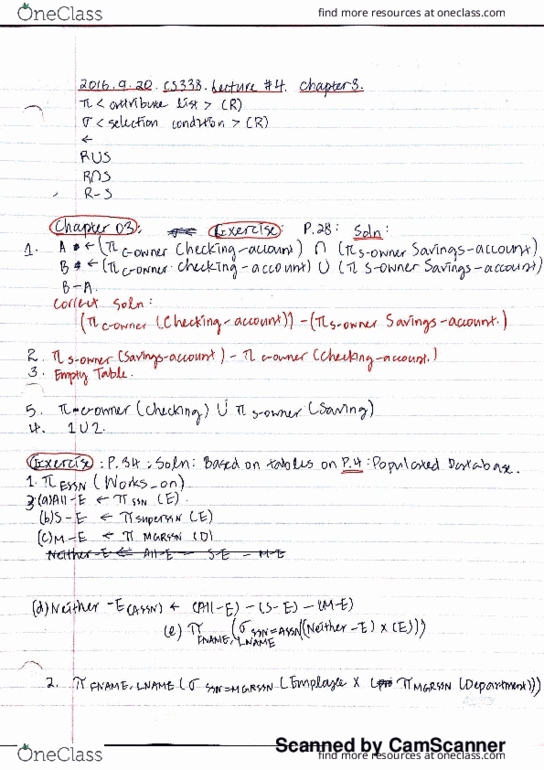 OneClass find more resources at oneclass.com
2016.9.20. CS338. Lecture #4. Chapter 3.
π < attribute list > (R)
σ < selection condition > (R)
←
R∪S
R∩S
R-S
Chapter 03: Exercise: P.28: Soln:
1. A ← (π c-owner Checking-account) ∩ (π s-owner Savings-account)
B ← (π c-owner checking-account) ∪ (π s-owner Savings-account)
B-A.
Correct Soln:
(π c-owner (Checking-account)) - (π s-owner Savings-account.)
2. π s-owner (Savings-account) - π c-owner (Checking-account.)
3. Empty Table.
5. π c-owner (Checking) ∪ π s-owner (Saving)
4. 1∪2.
Exercise: P.34: Soln: Based on tables on P.4: Populated Database.
1. π ESSN (Works_on)
3 (a) All-E ← π SSN (E)
(b) S-E ← π superssn (E)
(c) M-E ← π MGRSSN (D)
Neither-E ← All-E - S-E - M-E
(d) Neither-E(ASSN) ← (All-E) - (S-E) - (M-E)
(e) π FNAME, LNAME (σ SSN=ASSN ((Neither-E) x (E)))
2. π FNAME, LNAME (σ SSN=MGRSSN (Employee x (π MGRSSN (Department)))
Scanned by CamScanner
OneClass find more resources at oneclass.com